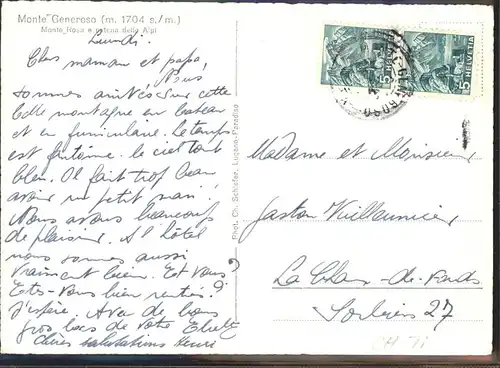 Monte Generoso (m. 1704 s./m.)
Monte Rosa e catena delle Alpi
Lundi.
Chers maman et papa,
Nous
sommes arrivés sur cette
belle montagne en bateau
et en funiculaire. Le temps
est fantôme. le ciel tout
bleu. Il fait trop beau
avoir un petit mari!
Nous avons beaucoup
de plaisir. A l'hôtel
nous sommes aussi
vraiment bien. Et vous?
Etes-vous bien rentrés?
J'espère. Avec de bons
gros becs de votre
Chères salutations Henri
Phot. Ch. Schiefer, Lugano-Paradiso
HELVETIA
5
HELVETIA
5
GENEROSO
Madame et Monsieur
Gaston Vuilleumier
La Chaux-de-Fonds
Sorbiers 27
CH TI